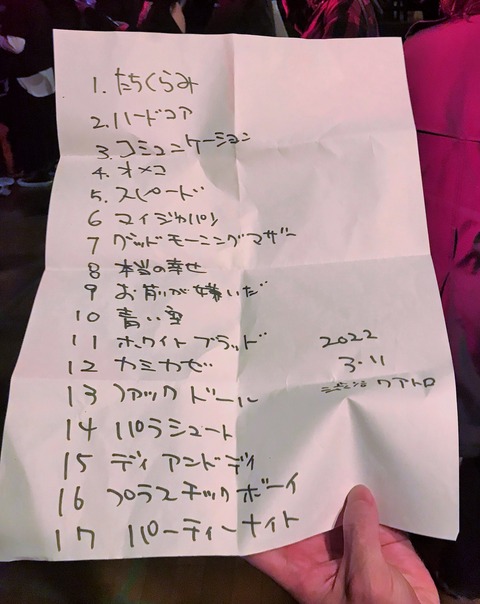 1. たちくらみ
2. ハードコア
3. コミュニケーション
4. オメコ
5. スペード
6 マイジャパン
7 グッドモーニングマザー
8 本当の幸せ
9 お前が嫌いだ
10 青い空
11 ホワイトブラッド
12 カミカゼ
13 ファックドール
14 パラシュート
15 デイアンドデイ
16 プラスチックボーイ
17 パーティーナイト
2022
3.11
渋谷クアトロ